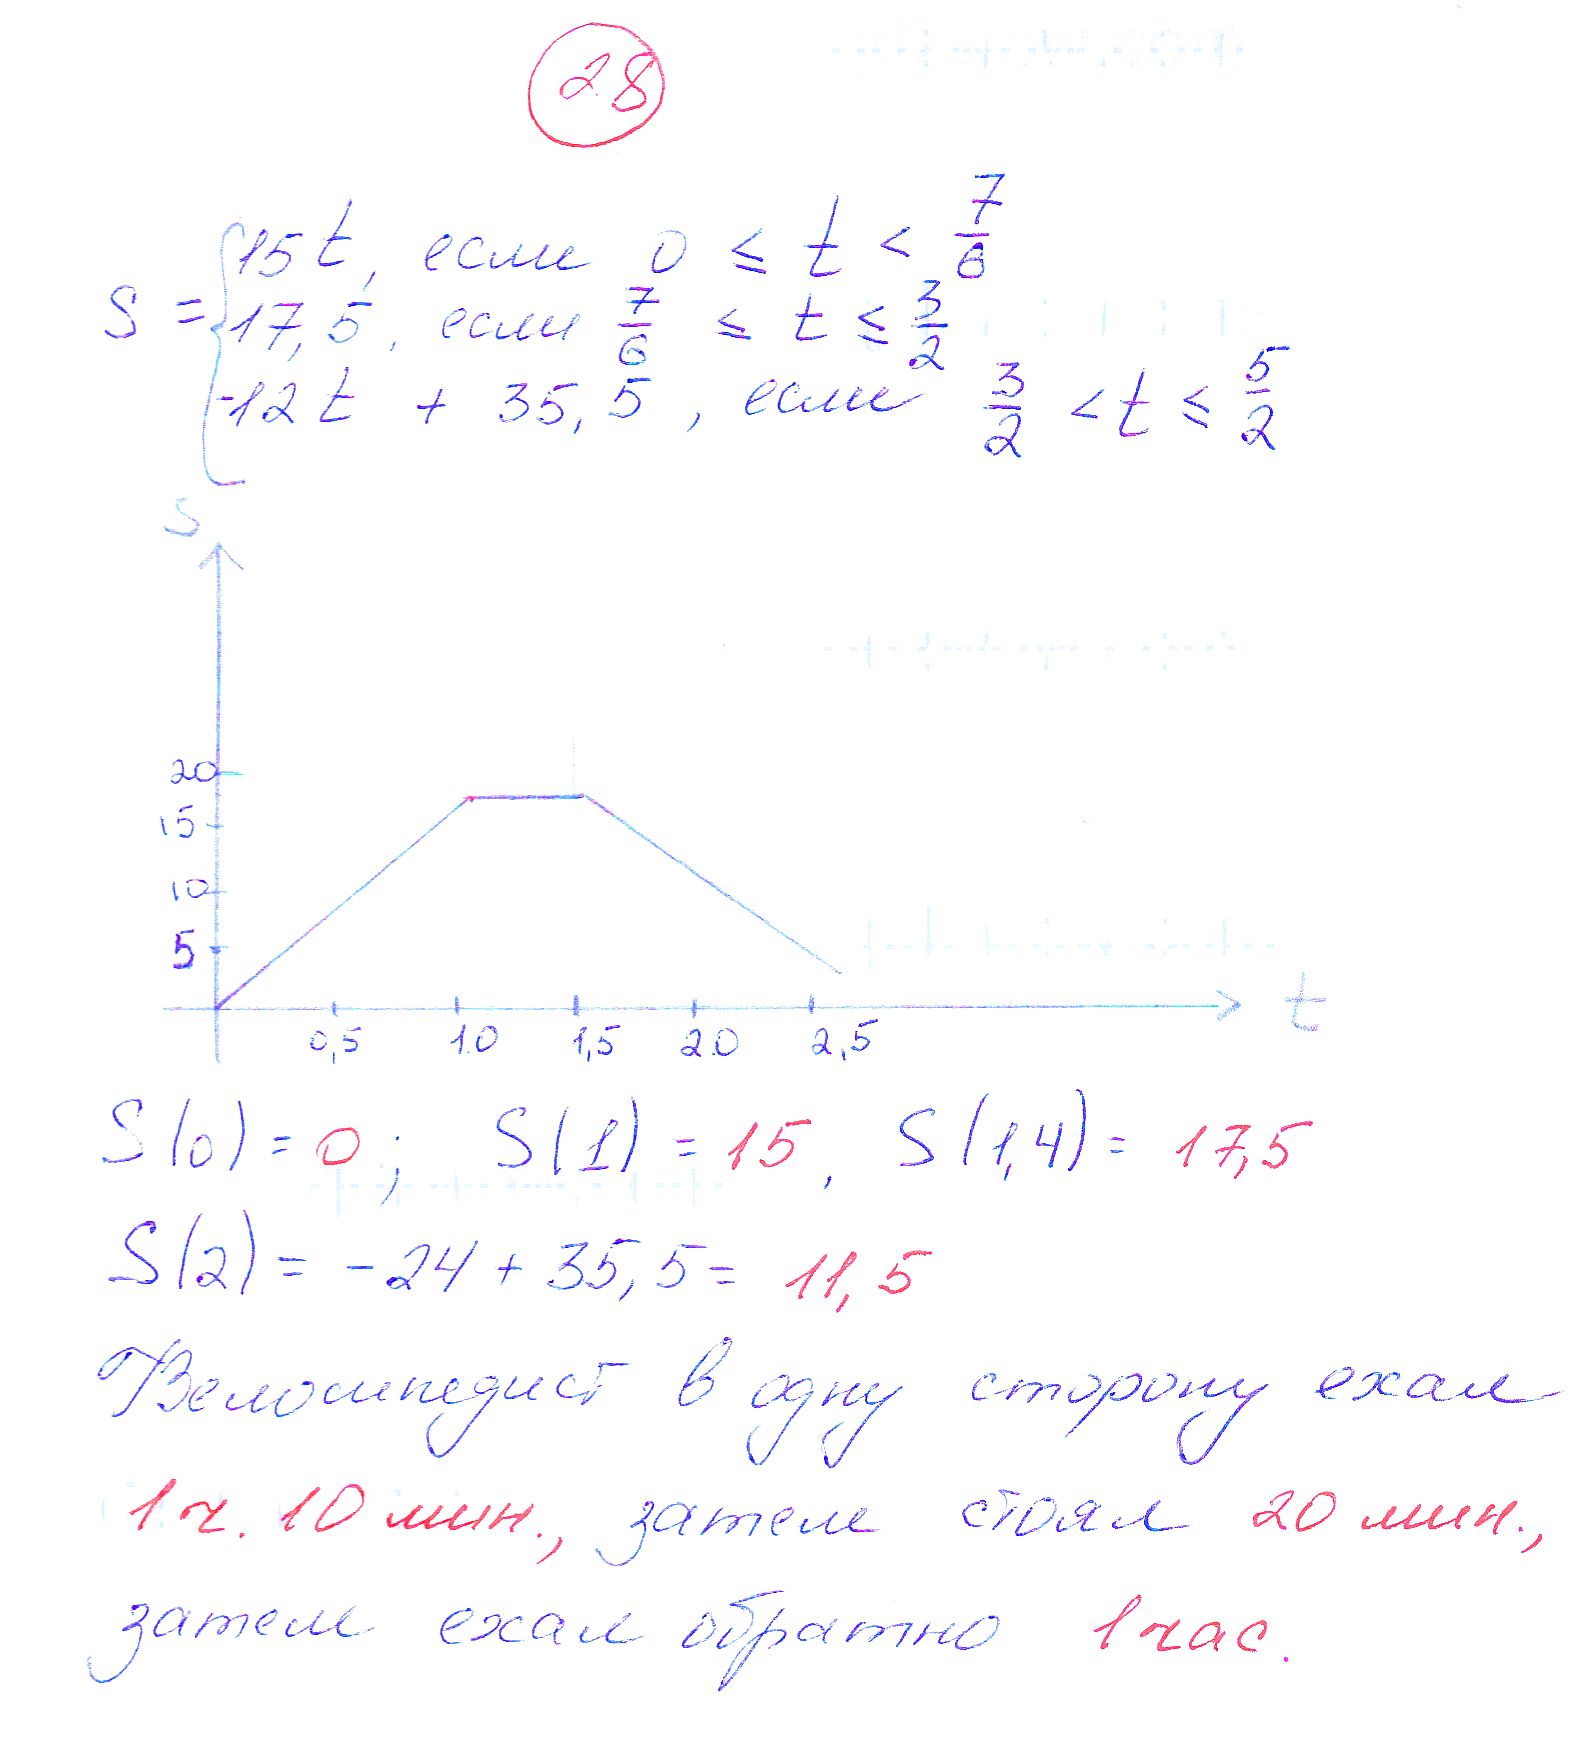 28
S = { 15t, если 0 ≤ t < 7/6
17,5, если 7/6 ≤ t ≤ 3/2
-12t + 35,5, если 3/2 < t ≤ 5/2
S
20
15
10
5
0,5 1.0 1,5 2.0 2,5 t
S(0) = 0; S(1) = 15, S(1,4) = 17,5
S(2) = -24 + 35,5 = 11,5
Велосипедист в одну сторону ехал
1 ч. 10 мин., затем стоял 20 мин.,
затем ехал обратно 1 час.